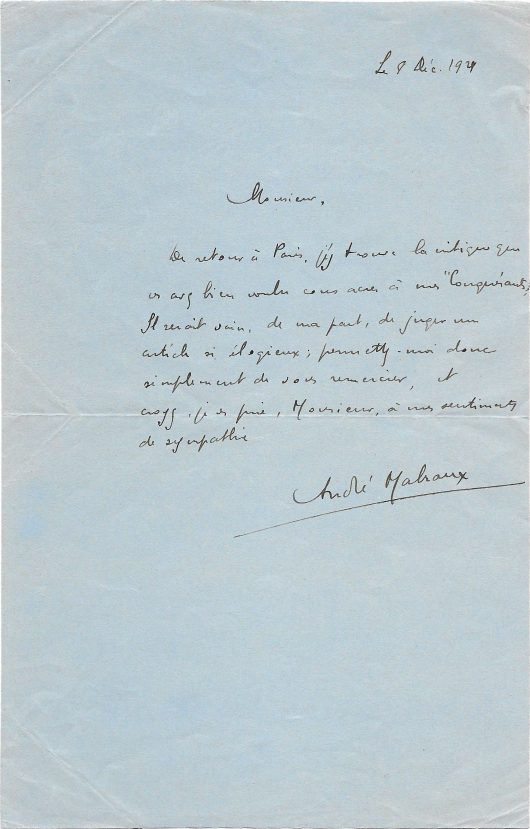 Le 8 Déc. 192
Monsieur,
De retour à Paris, j'y trouve la critique que
vs avez bien voulu consacrer à mes "Conquérants".
Il serait vain, de ma part, de juger un
article si élogieux ; permettez-moi donc
simplement de vous remercier, et
croyez, je vs prie, Monsieur, à mes sentiments
de sympathie
André Malraux